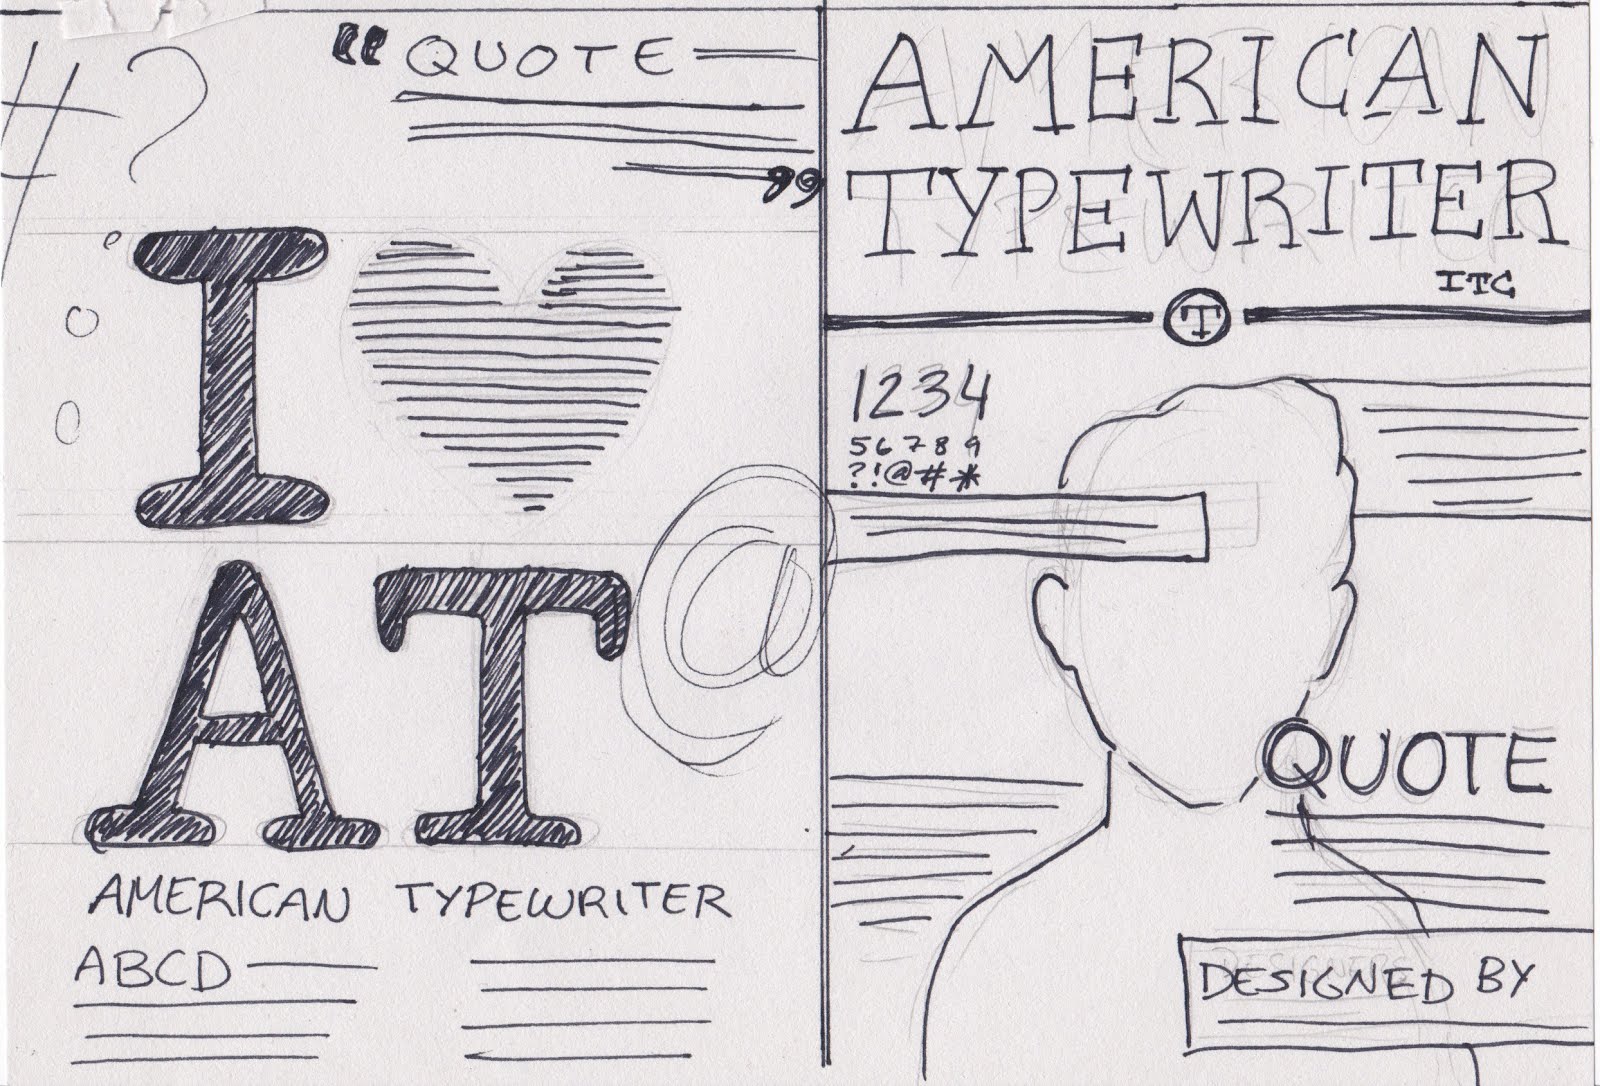 #?
“ QUOTE
”
I
AT
@
AMERICAN TYPEWRITER
ABCD
AMERICAN
TYPEWRITER
ITC
T
1234
56789
?!@#*
QUOTE
DESIGNED BY